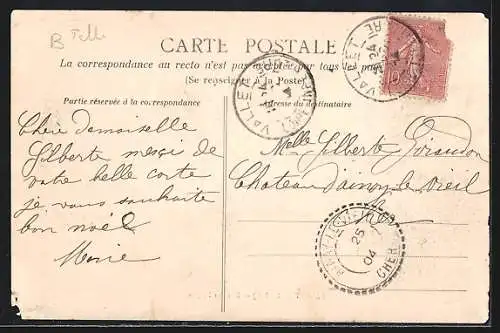 B Telle
CARTE POSTALE
La correspondance au recto n'est pas acceptée par tous les pays
(Se renseigner à la Poste)
Partie réservée à la correspondance
Adresse du destinataire
Chère Demoiselle
Gilberte merci de
votre belle carte
je vous souhaite
bon noël
Marie
Melle Gilberte Giraudon
Chateau d'ainay le vieil
Cher
VALLET
24
VALLET
24
AINAY-LE-VIEIL
25
04
CHER